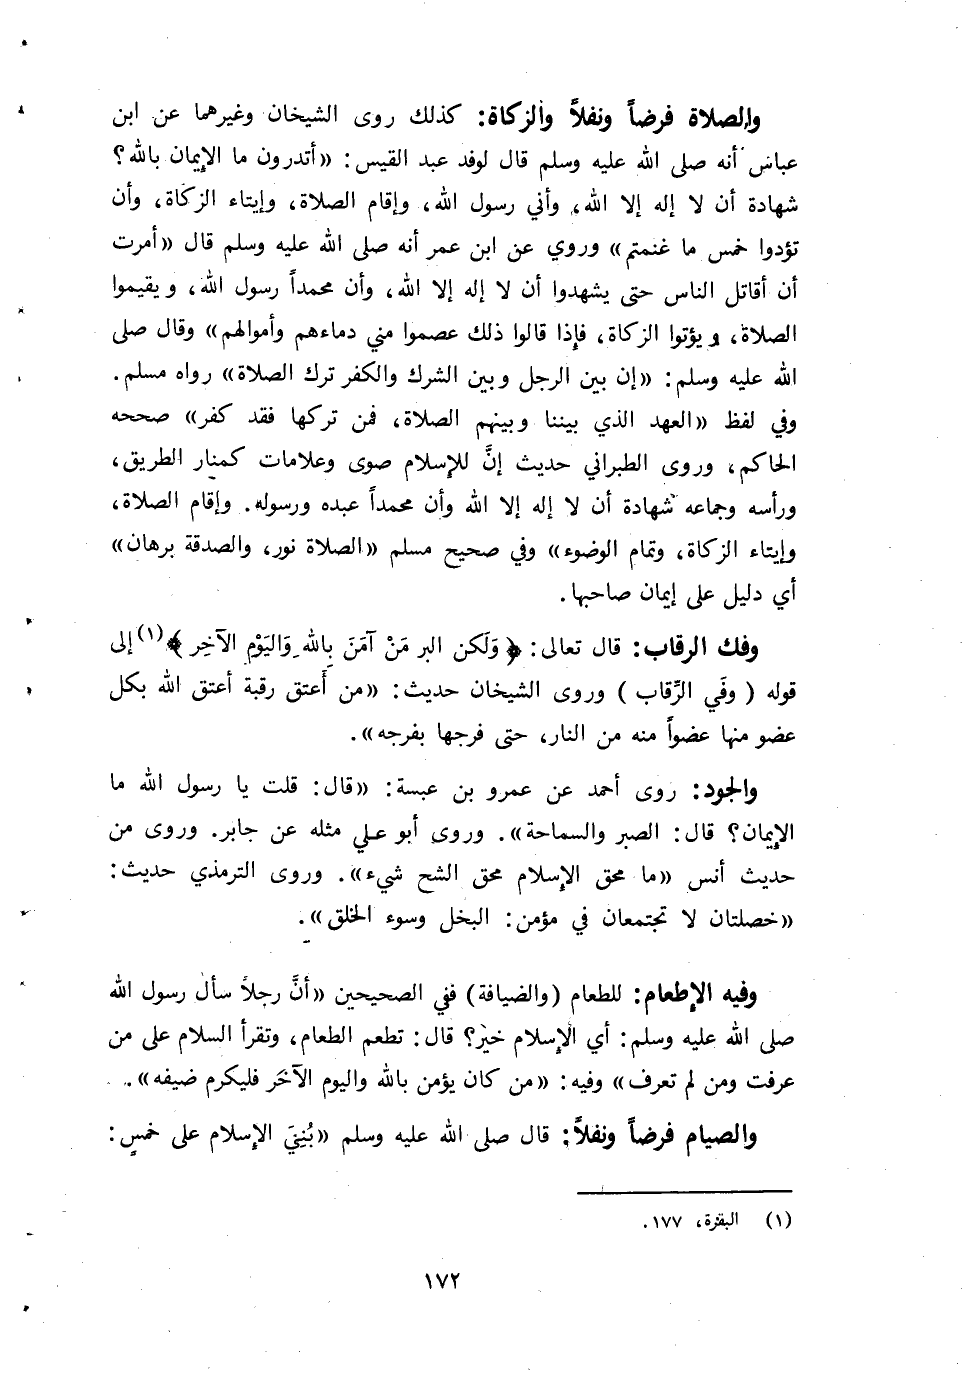 والصلاة فرضاً ونفلاً والزكاة: كذلك روى الشيخان وغيرهما عن ابن
عباس أنه صلى الله عليه وسلم قال لوفد عبد القيس: «أتدرون ما الإيمان بالله؟
شهادة أن لا إله إلا الله، وأني رسول الله، وإقام الصلاة، وإيتاء الزكاة، وأن
تؤدوا خمس ما غنمتم» وروي عن ابن عمر أنه صلى الله عليه وسلم قال «أمرت
أن أقاتل الناس حتى يشهدوا أن لا إله إلا الله، وأن محمداً رسول الله، ويقيموا
الصلاة، ويؤتوا الزكاة، فإذا قالوا ذلك عصموا مني دماءهم وأموالهم» وقال صلى
الله عليه وسلم: «إن بين الرجل وبين الشرك والكفر ترك الصلاة» رواه مسلم.
وفي لفظ «العهد الذي بيننا وبينهم الصلاة، فمن تركها فقد كفر» صححه
الحاكم، وروى الطبراني حديث إنَّ للإسلام صوى وعلامات كمنار الطريق،
ورأسه وجماعه شهادة أن لا إله إلا الله وأن محمداً عبده ورسوله. وإقام الصلاة،
وإيتاء الزكاة، وتمام الوضوء» وفي صحيح مسلم «الصلاة نور، والصدقة برهان»
أي دليل على إيمان صاحبها.
وفك الرقاب: قال تعالى: ﴿وَلَكن البر مَنْ آمَنَ بِالله وَاليَوْمِ الآخِر﴾(١) إلى
قوله ( وفَي الرِّقاب ) وروى الشيخان حديث: «من أَعتق رقبة أعتق الله بكل
عضو منها عضواً منه من النار، حتى فرجها بفرجه».
والجود: روى أحمد عن عمرو بن عبسة: «قال: قلت يا رسول الله ما
الإيمان؟ قال: الصبر والسماحة». وروى أبو علي مثله عن جابر. وروى من
حديث أنس «ما محق الإسلام محق الشح شيء». وروى الترمذي حديث:
«خصلتان لا تجتمعان في مؤمن: البخل وسوء الخلق».
وفيه الإطعام: للطعام (والضيافة) ففي الصحيحين «أنَّ رجلاً سأل رسول الله
صلى الله عليه وسلم: أي الإسلام خيْر؟ قال: تطعم الطعام، وتقرأ السلام على من
عرفت ومن لم تعرف» وفيه: «من كان يؤمن بالله واليوم الآخر فليكرم ضيفه».
والصيام فرضاً ونفلاً: قال صلى الله عليه وسلم «بُنِيَ الإسلام على خمسٍ:
(١) البقرة، ١٧٧.
١٧٢